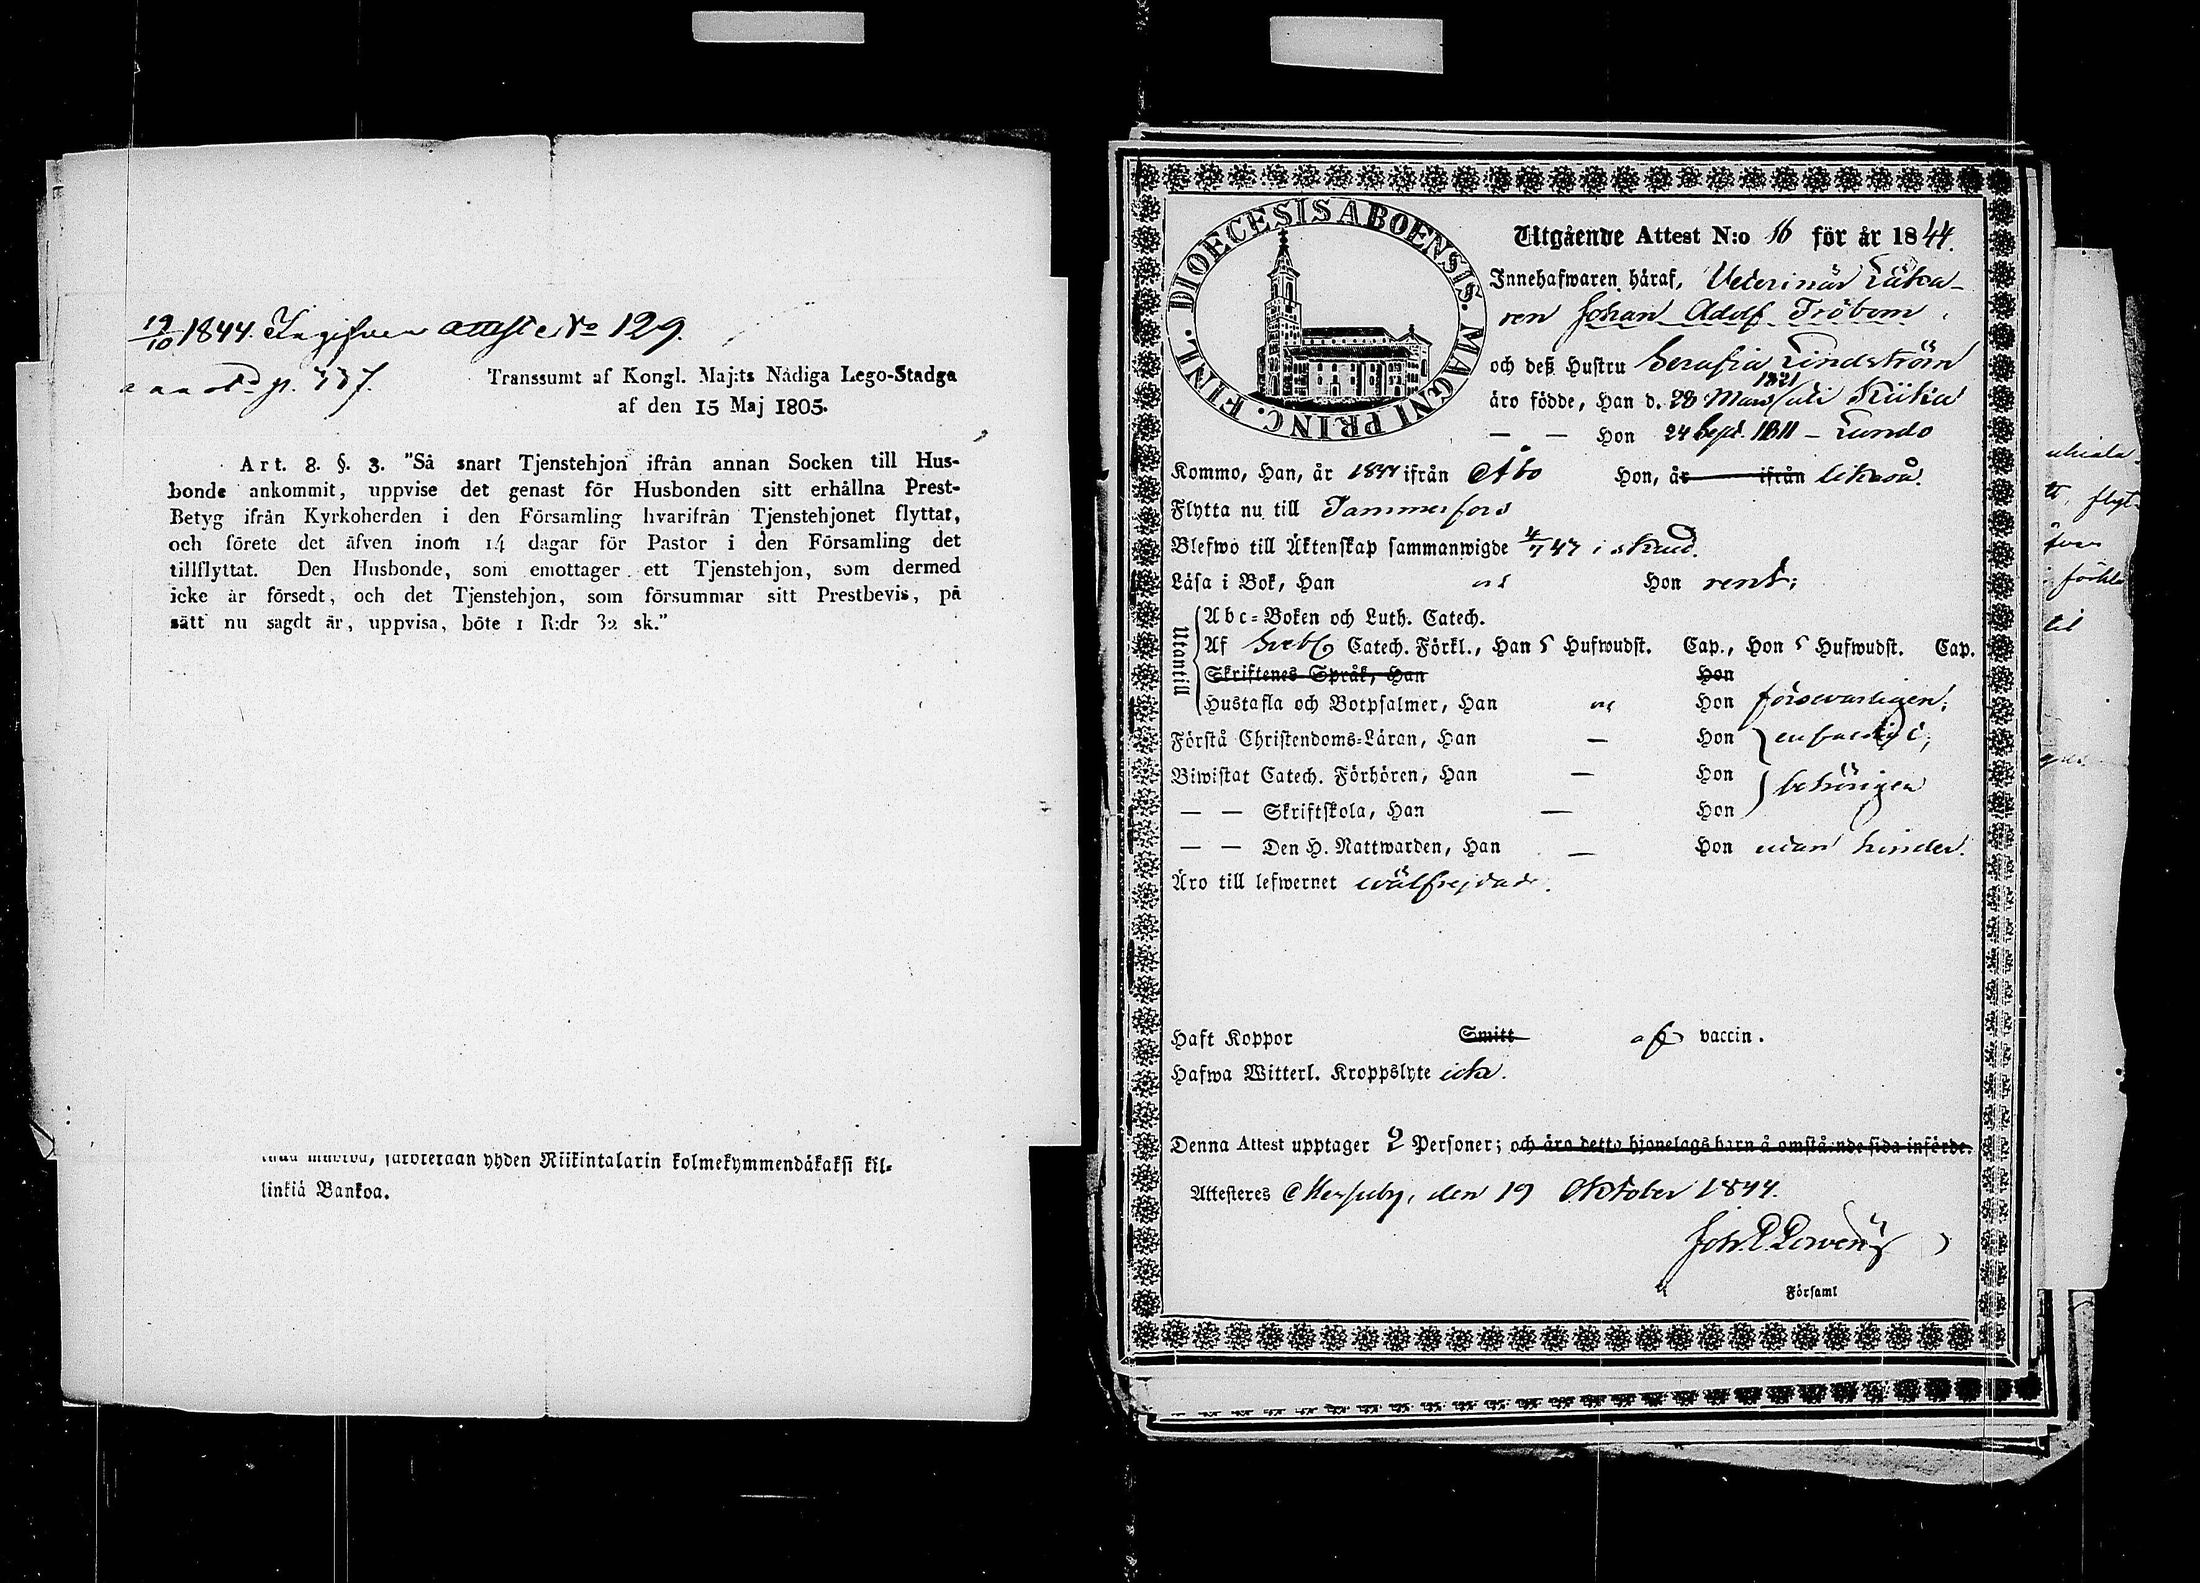 19/10 1844. Ingifven attest No 129.
p. 337.
Transsumt af Kongl. Maj:ts Nådiga Lego-Stadga
af den 15 Maj 1805.
Art. 8. §. 3. "Så snart Tjenstehjon ifrån annan Socken till Hus-
bonde ankommit, uppvise det genast för Husbonden sitt erhållna Prest-
Betyg ifrån Kyrkoherden i den Församling hvarifrån Tjenstehjonet flyttat,
och förete det äfven inom 14 dagar för Pastor i den Församling det
tillflyttat. Den Husbonde, som emottager ett Tjenstehjon, som dermed
icke är försedt, och det Tjenstehjon, som försummar sitt Prestbevis, på
sätt nu sagdt är, uppvisa, böte 1 R:dr 32 sk."
yhden Riikintalarin kolmekymmendäkaksi kil-
linkiä Bankoa.
DIOECESIS ABOENSIS. MAGNI PRINC. FINL.
Utgående Attest N:o 16 för år 1844.
Innehafwaren häraf, Veterinär Läka-
ren Johan Adolf Fröbom
och deß Hustru Serafia Lindström
1821
äro födde, Han d. 28 Mars uti
— — Hon 24 Sept. 1811 – Lundo
Kommo, Han, år 1844 ifrån Åbo Hon, år ifrån likaså.
Flytta nu till Tammerfors
Blefwo till Äktenskap sammanwigde
Läsa i Bok, Han Hon rent;
Utantill
Abc-Boken och Luth. Catech.
Af Sveb. Catech. Förkl., Han 5 Hufwudst. Cap., Hon 5 Hufwudst. Cap.
Skriftenes Språk, Han Hon
Hustafla och Botpsalmer, Han Hon försvarligen;
Förstå Christendoms-Läran, Han — Hon enfaldigt;
Biwistat Catech. Förhören, Han — Hon behörigen
— — Skriftskola, Han — Hon
— — Den H. Nattwarden, Han — Hon utan hinder.
Äro till lefwernet wälfrejdade.
Haft Koppor Smitt af vaccin.
Hafwa Witterl. Kroppslyte icke.
Denna Attest upptager 2 Personer; och äro detta hjonelags barn å omstående sida införde.
Attesteres Merjerby, den 19 Oktober 1844.
Församl